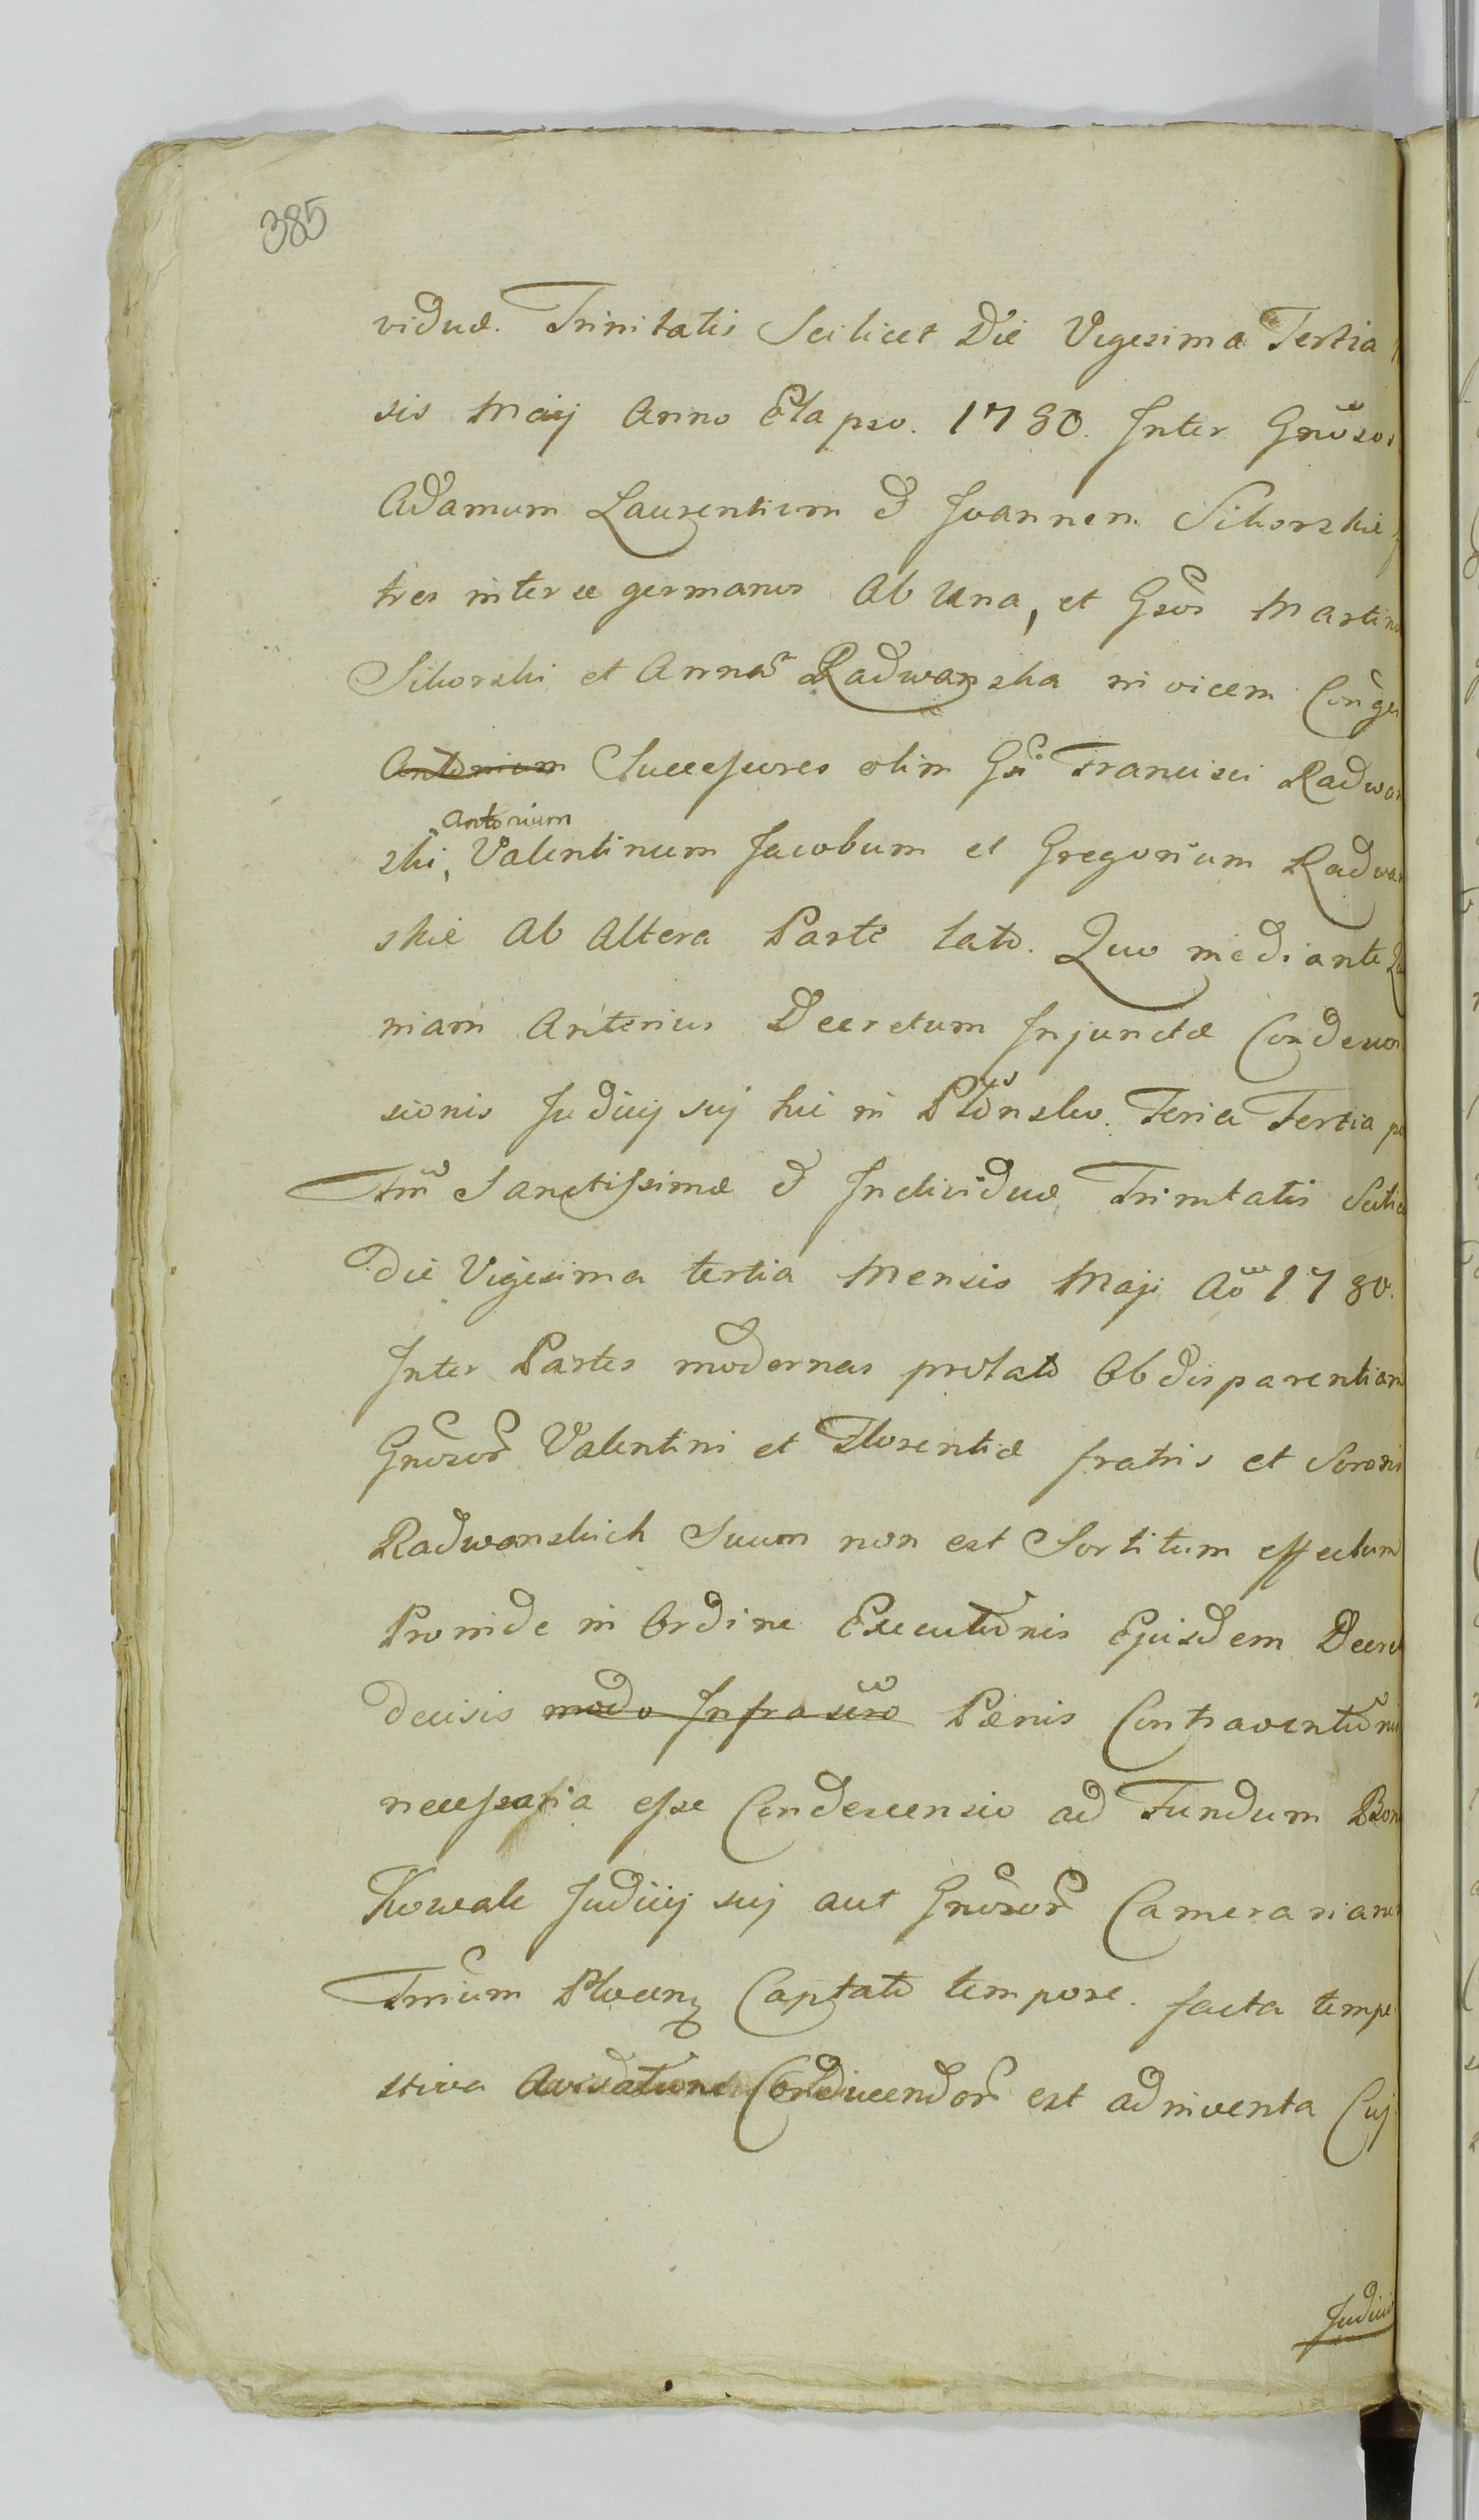 385
viduæ. Trinitatis Scilicet Die Vigesima Tertia
sis Maij Anno Elapso. 1780. Inter Gnosos
Adamum Laurentium & Joannem Sikorskie
tres inter se germanos Ab Una, et Gsos Martin
Sikorski et Anna Radwanska in vicem Conge
Antonium Successores olim Gsi Francisci Radwan
Antonium
ski, Valentinum Jacobum et Gregorium Radwan
skie Ab Altera Parte lato. Quo mediante
niam Anterius Decretum Injunctæ Condescen
sionis Judicij sui hic in Płońsko. Feria Tertia po
Ftm Sanctissimæ & Individuæ Trinitatis Scilic
Die Vigesima tertia Mensis Maji Ao 1780.
Inter Partes modernas prolato Ob disparentiam
Gnosor Valentini et Florentiæ fratris et Sororis
Radwanskich Suum non est Sortitum effectum
Proinde in Ordine Executionis Ejusdem Decret
decisis modo Infrascro Pænis Contraventionis
necessaria esse Condescensio ad Fundum Bon
Kowale Judicij suj aut Gnosor Camerarian
Trium Plocen Captato tempore. facta tempe
stiva Avisatione Conducendor est adinventa Cuj
Judicii